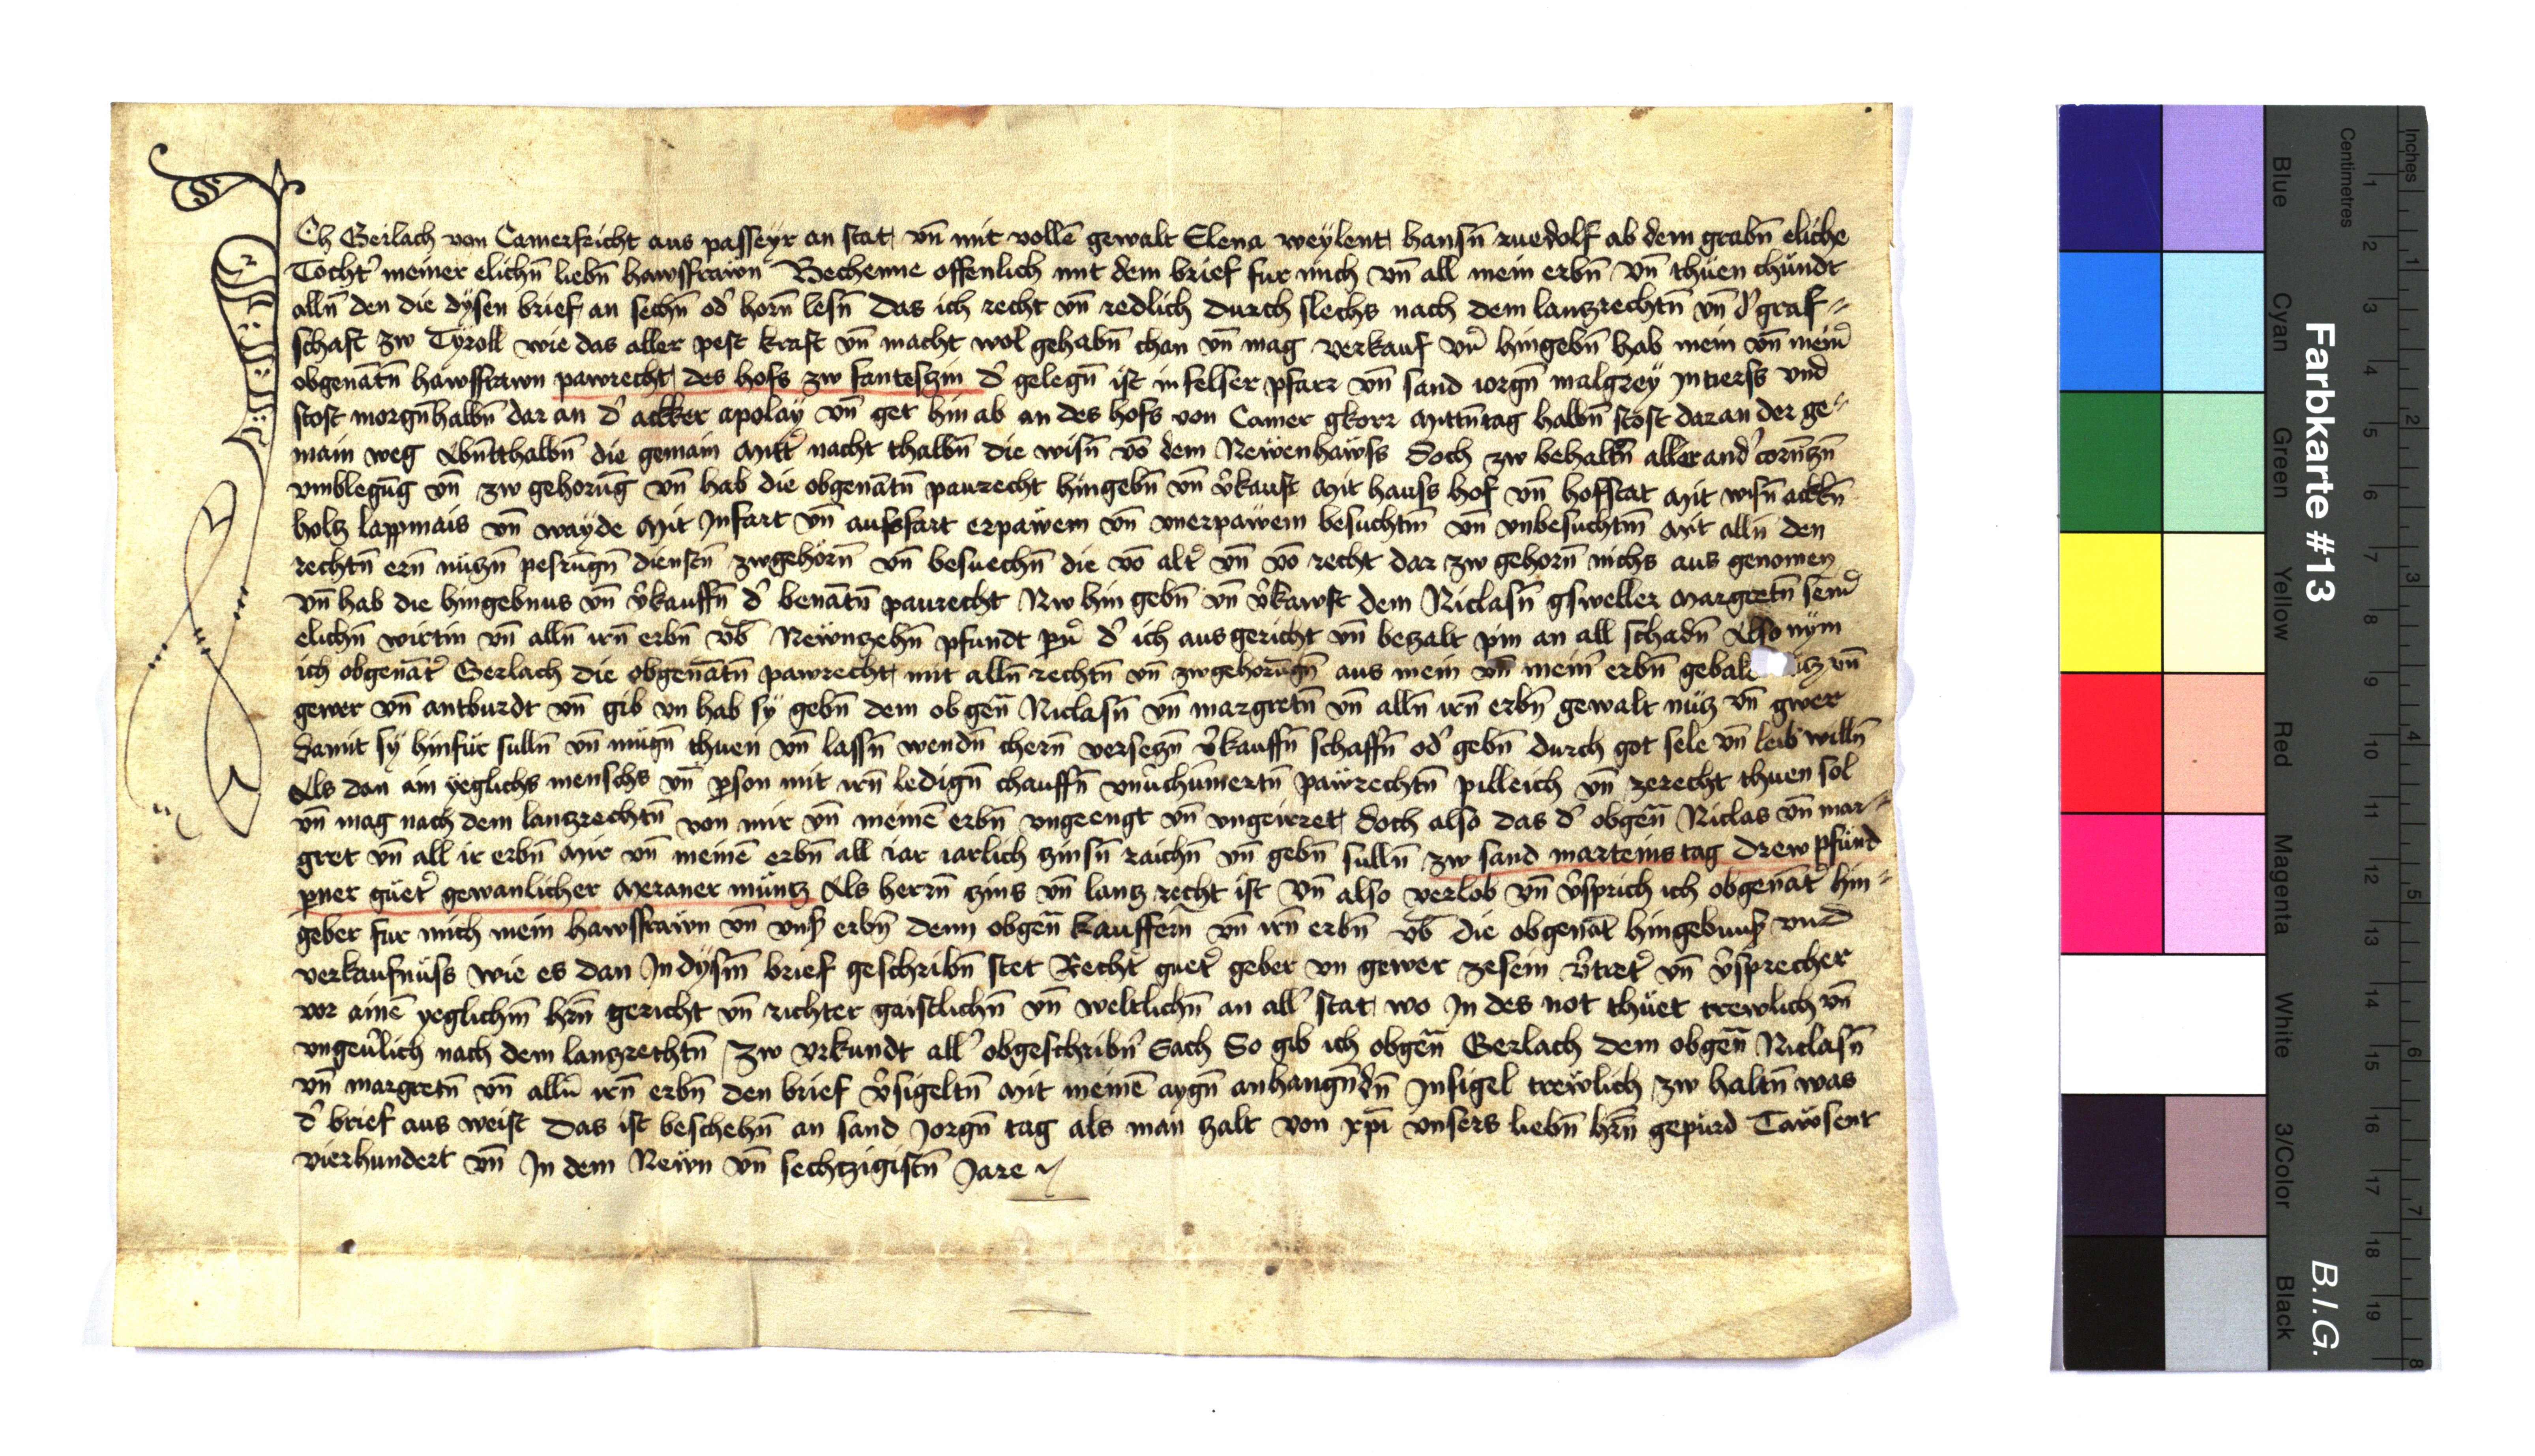 Ich Gerlach von Camerfricht aus passeyr an stat vn̄ mit vollē gewalt Elena weylent hansn̄ ruedolf ab dem grabn̄ eliche
Tocht' meiner elichn̄ liebn̄ hawsfrawn Bechenne offenlich mit dem brief fur mich vn̄ all mein erbn̄ vn̄ thuen chundt
alln̄ den die dysen brief an sechn̄ od' horn̄ lesn̄ das ich recht vn̄ redlich durch slechs nach dem lanzrechtn̄ vn̄ d' graf=
schaft zw Tyroll wie das aller pest kraft vn̄ macht wol gehabn̄ chan vn̄ mag verkauf vn̄ hingebn̄ hab mein vn̄ mein'
obgenātn̄ hawsfrawn pawrecht des hofs zw fanteszin d' gelegn̄ ist in felser pfarr vn̄ sand iorgn̄ malgrey in tierss vnd
stost morgn̄halbn̄ dar an d' ackker apolay vn̄ get hin ab an des hofs von Camer gkorr mittn̄tag halbn̄ stost daran der ge=
main weg Abn̄tthalbn̄ die gemain mitt' nacht thalbn̄ die wisn̄ vō dem Newenhawss doch zw behaltn̄ aller and'
vmblegūg vn̄ zw gehorūg vn̄ hab die obgenātn̄ paurecht hingebn̄ vn̄ v'kauft mit hauss hof vn̄ hofstat mit wisn̄ ackn̄
holz lappmais vn̄ wayde mit Infart vn̄ aussfart erpawem vn̄ vnerpawem besuchtm̄ vn̄ vnbesuchtm̄ mit alln̄ den
rechtn̄ ern̄ nuzn̄ pesrūgn̄ dienstn̄ zwgehorn̄ vn̄ besuechn̄ die vō alt' vn̄ vō recht dar zw gehorn̄ nichs aus genomen
vn̄ hab die hingebnus vn̄ v'kauffn̄ d' benātn̄ paurecht Nw hin gebn̄ vn̄ v'kawft dem Niclasn̄ gsweller margretn̄ sein'
elichn̄ wirtin vn̄ alln̄ irn̄ erbn̄ vb̄ Newnzehn̄ pfundt pn̄' d' ich ausgericht vn̄ bezalt pin an all schadn̄ Also nym
ich obgenāt' Gerlach die obgenātn̄ pawrecht mit alln̄ rechtn̄ vn̄ zwgehorūgn̄ aus mein vn̄ mein' erbn̄ vn̄
gewer vn̄ antburdt vn̄ gib vn hab sy gebn̄ dem obgen̄ Niclasn̄ vn̄ margretn̄ vn̄ alln̄ irn̄ erbn̄ gewalt nuz vn̄ gwer
damit sy hinfur sulln̄ vn̄ mugn̄ thuen vn̄ lassn̄ wendn̄ chern̄ versezn̄ v'kauffn̄ schaffn̄ od' gebn̄ durch got sele vn̄ leib willn̄
Als dan ain yeglichs menschs vn̄ pson mit irn̄ ledign̄ chauffn̄ vnuchumertn̄ pawrechtn̄ pilleich vn̄ zerecht thuen sol
vn̄ mag nach dem lanzrechtn̄ von mir vn̄ meinē erbn̄ vngeengt vn̄ vngeirret doch also das d' obgen̄ Niclas vn̄ mar=
gret vn̄ all ir erbn̄ mir vn̄ meinē erbn̄ all iar iarlich zinsn̄ raichn̄ vn̄ gebn̄ sulln̄ zw sand marteinstag drew pfund
pner guet' gewanlicher Meraner muntz Als herrn̄ zins vn̄ lanz recht ist vn̄ also verlob vn̄ v'sprich ich obgenāt' hin=
geber fur mich mein hawsfrawn vn̄ vns' erbn̄ denn obgen̄ kauffern̄ vn̄ irn̄ erbn̄ vb̄ die obgenāt hingebnus vnd
verkaufnuss wie es dan In dysm̄ brief geschribn̄ stet Recht' guet' geber vn gewer zesein v'tret' vn̄ v'sprecher
vor ainē yeglichm̄ hrn̄ gericht vn̄ richter gaistlichn̄ vn̄ weltlichn̄ an all' stat wo In des not thuet trewlich vn̄
vngeu'lich nach dem lanzrechtn̄ zw vrkundt all' obgeschribn̄ Sach So gib ich obgen̄ Gerlach dem obgen̄ Niclasn̄
vn̄ margretn̄ vn̄ alln̄ irn̄ erbn̄ den brief v'sigeltn̄ mit meinē aygn̄ anhangn̄dn̄ Insigel trewlich zw haltn̄ was
d' brief aus weist Das ist beschehn̄ an sand Jorgn̄ tag als man zalt von xpī vnsers liebn̄ hrn̄ gepurd Tawsent
vierhundert vn̄ In dem Newn vn̄ sechtzigistn̄ Jare
Farbkarte #13
B.I.G.
Blue Cyan Green Yellow Red Magenta White 3/Color Black
Centimetres 1 2 3 4 5 6 7 8 9 10 11 12 13 14 15 16 17 18 19
Inches 1 2 3 4 5 6 7 8